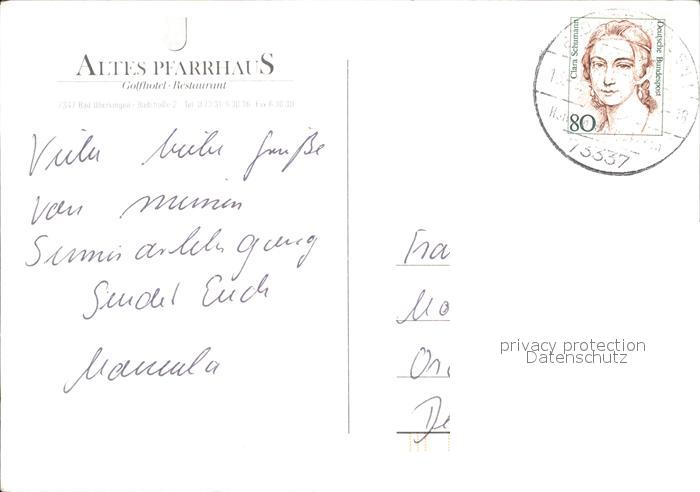 ALTES PFARRHAUS
Golfhotel · Restaurant
7347 Bad Überkingen · Badstraße 2
Viele liebe Grüße
von meinem
Seminarlehrgang
Sendet Euch
Manuela
Clara Schumann
Deutsche Bundespost
80
73337
Fra
Ma
De
privacy protection
Datenschutz